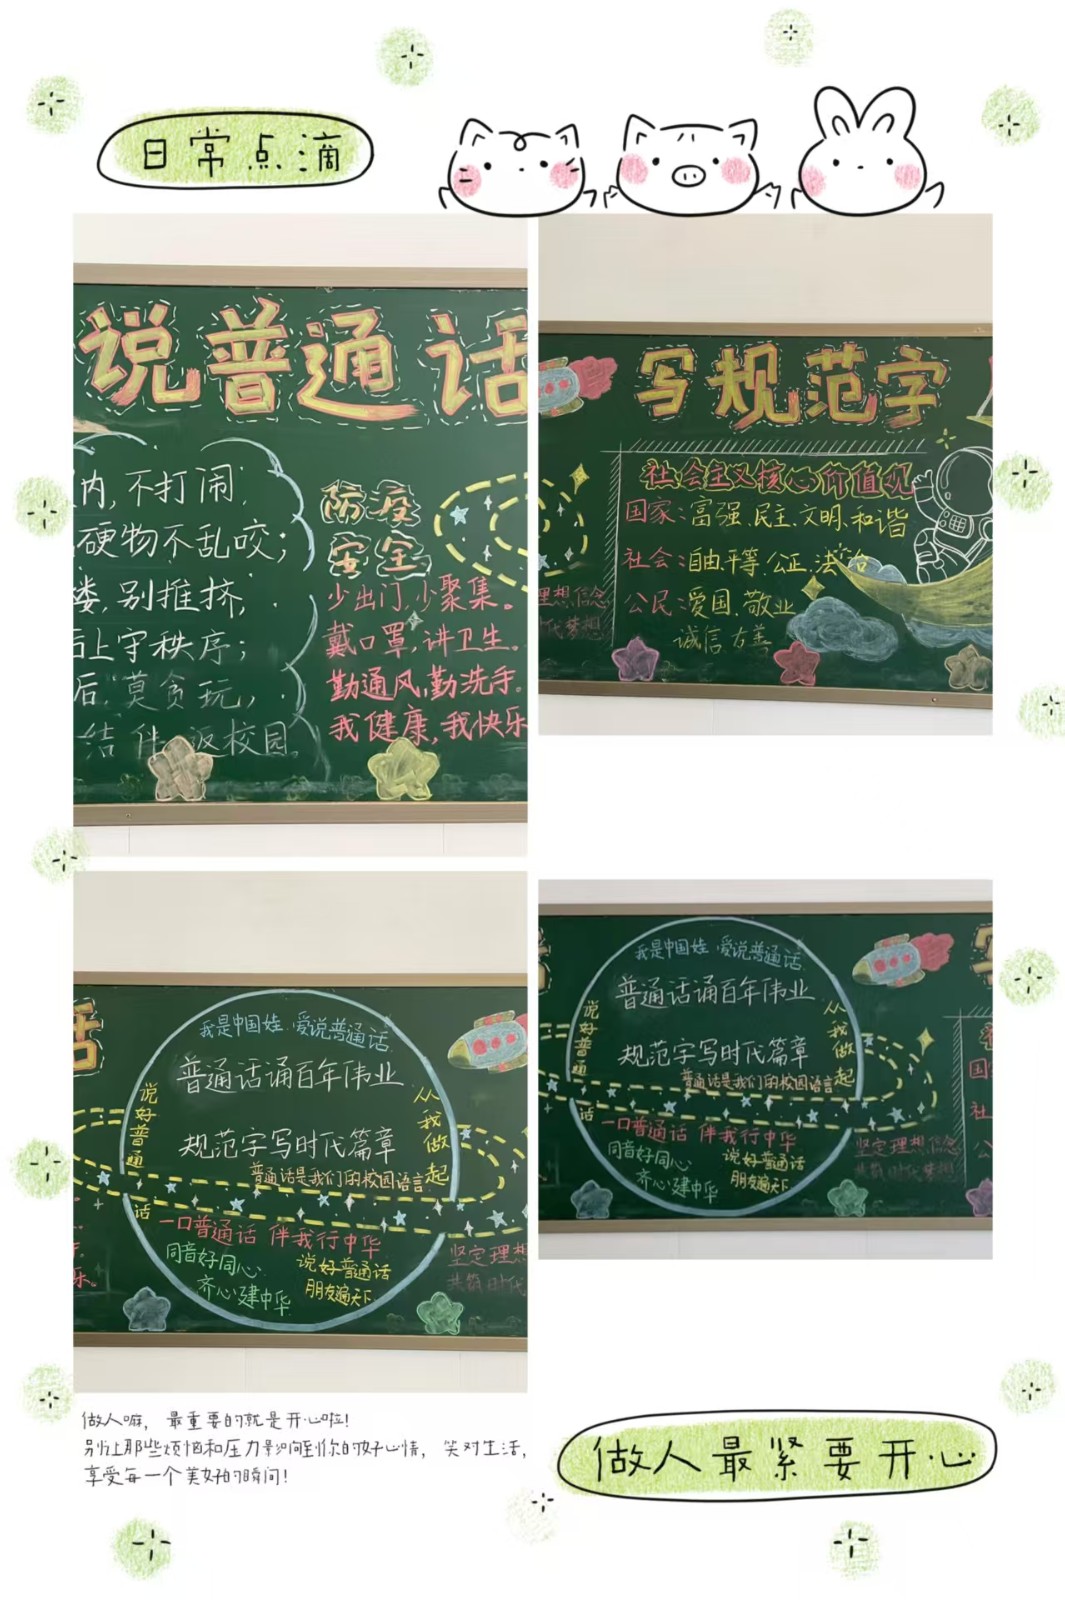 日常点滴
说普通话
内,不打闹,
硬物不乱咬;
楼,别推挤,
后上守秩序;
后,莫贪玩,
结伴返校园。
防疫
安全
少出门,少聚集。
戴口罩,讲卫生。
勤通风,勤洗手。
我健康,我快乐
写规范字
社会主义核心价值观
国家:富强、民主、文明、和谐
社会:自由、平等、公正、法治
公民:爱国、敬业
诚信 友善
理想信念
代梦想
话
我是中国娃 爱说普通话
普通话诵百年伟业
说好普通话
从我做起
规范字写时代篇章
普通话是我们的校园语言
一口普通话 伴我行中华
同音好同心
齐心建中华
说好普通话
朋友遍天下
坚定理想
共筑时代
乐。
我是中国娃 爱说普通话
普通话诵百年伟业
说好普通话
从我做起
规范字写时代篇章
普通话是我们的校园语言
一口普通话 伴我行中华
同音好同心
齐心建中华
说好普通话
朋友遍天下
坚定理想信念
共筑时代梦想
国
社
做人嘛,最重要的就是开心啦!
别让那些烦恼和压力影响到你的好心情,笑对生活,
享受每一个美好的瞬间!
做人最紧要开心